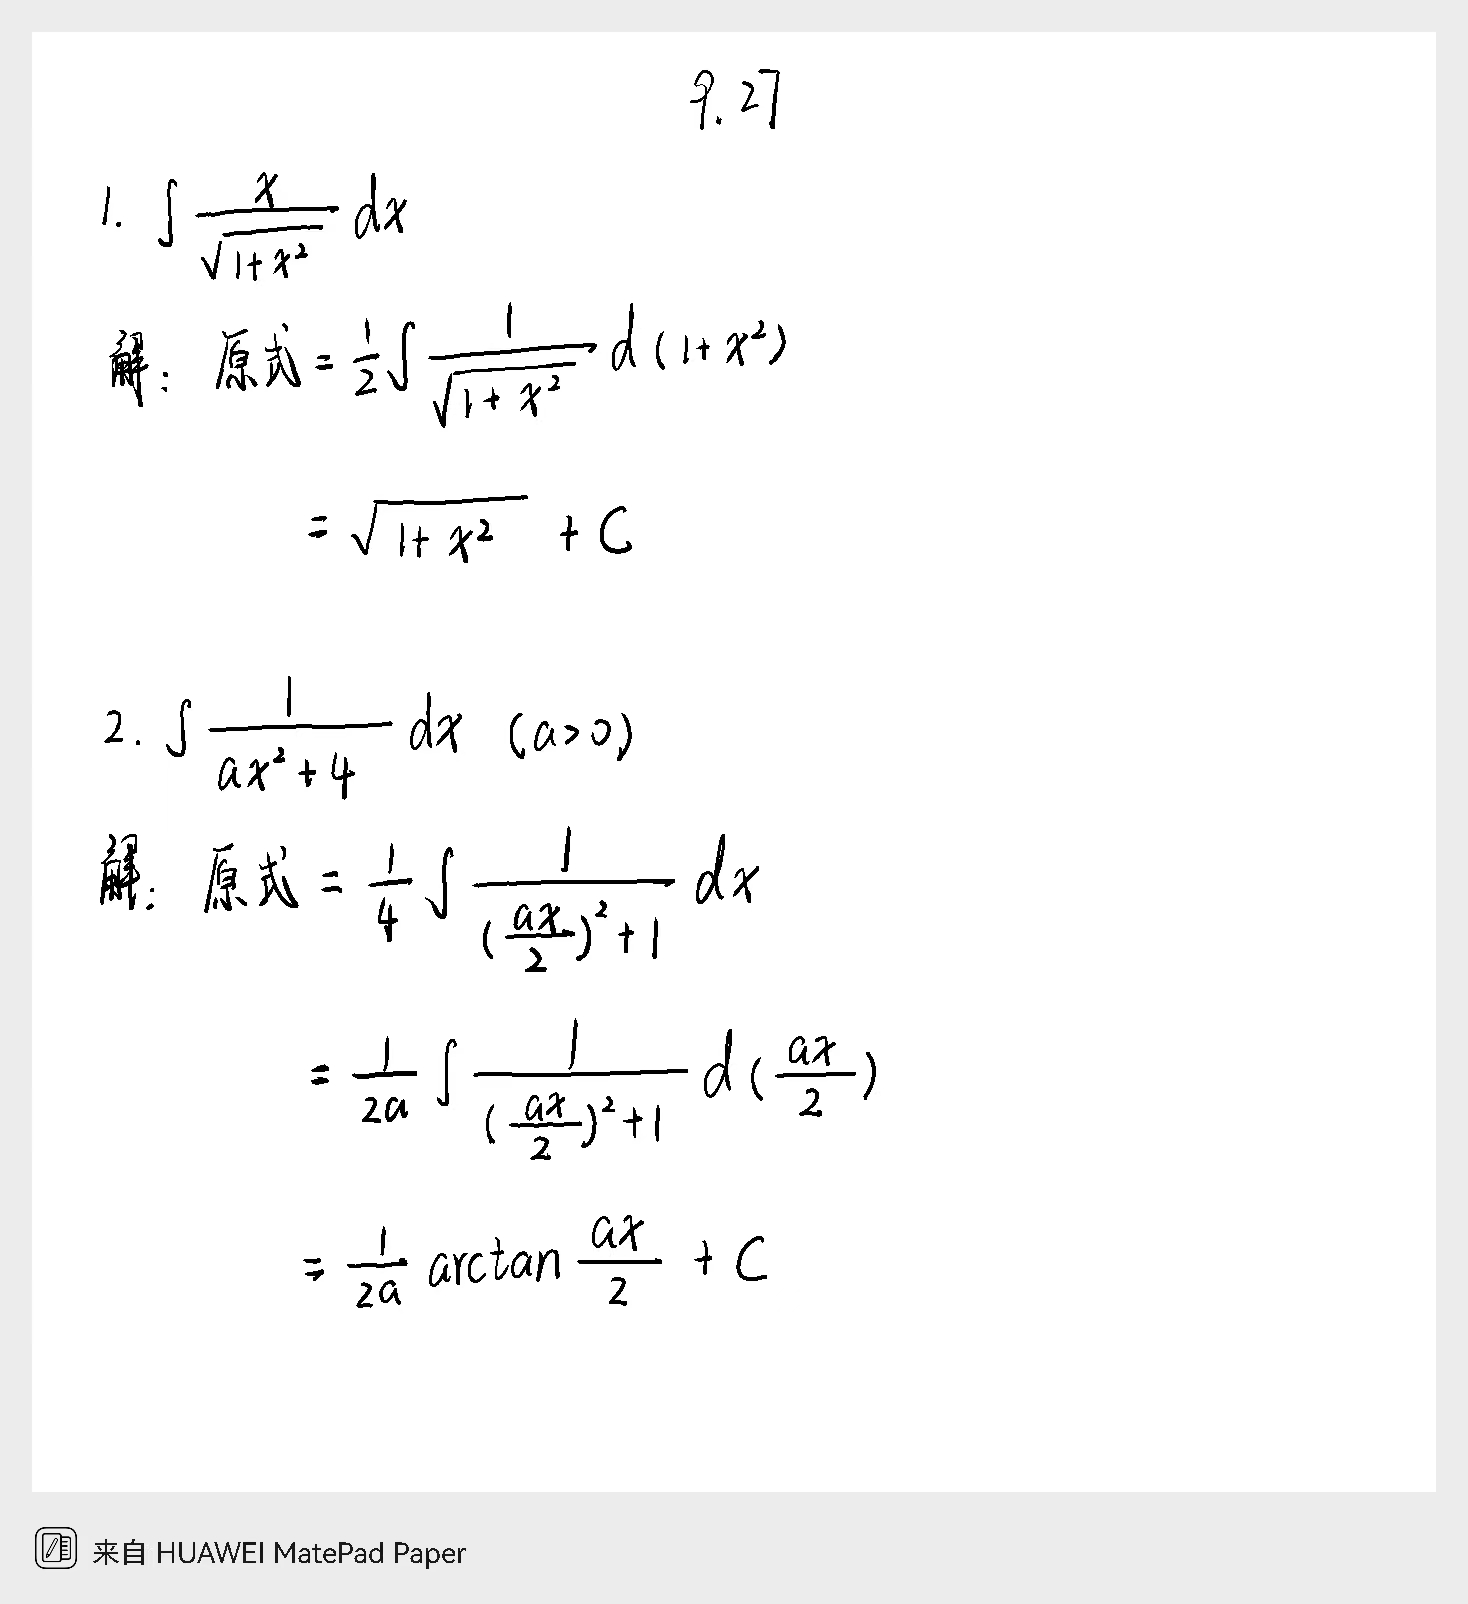 9.27
1. ∫ x/√(1+x²) dx
解: 原式 = 1/2 ∫ 1/√(1+x²) d(1+x²)
= √(1+x²) + C
2. ∫ 1/(ax²+4) dx (a>0)
解: 原式 = 1/4 ∫ 1/((ax/2)²+1) dx
= 1/2a ∫ 1/((ax/2)²+1) d(ax/2)
= 1/2a arctan ax/2 + C
来自 HUAWEI MatePad Paper